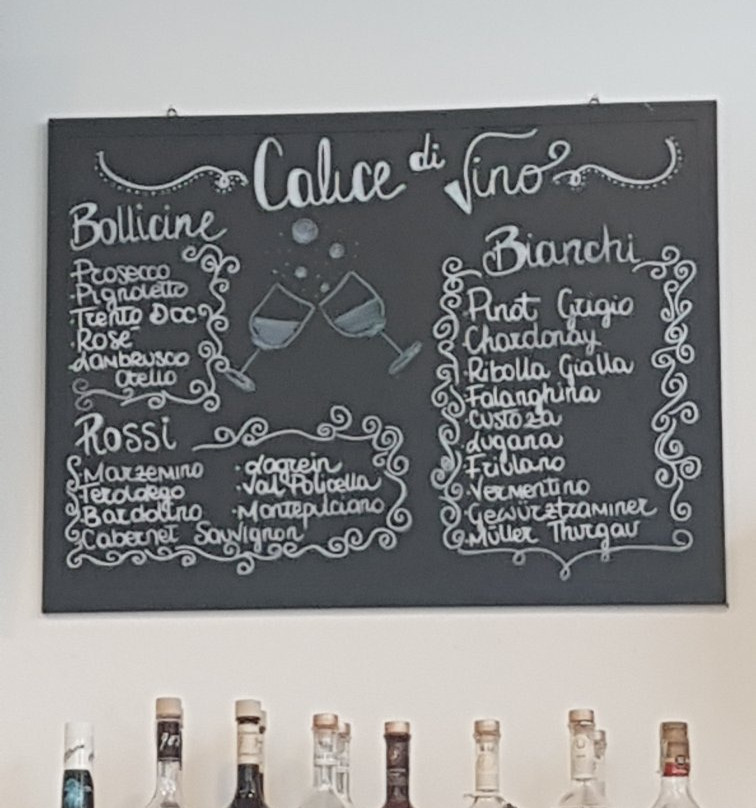 Calice di Vino
Bollicine
·Prosecco
·Pignoletto
·Trento Doc
·Rosé
·Lambrusco
Otello
Rossi
·Marzemino
·Teroldego
·Bardolino
·Cabernet Sauvignon
·Lagrein
·Val Policella
·Montepulciano
Bianchi
·Pinot Grigio
·Chardonay
·Ribolla Gialla
·Falanghina
·Custoza
·Lugana
·Friulano
·Vermentino
·Gewürztraminer
·Müller Thurgau